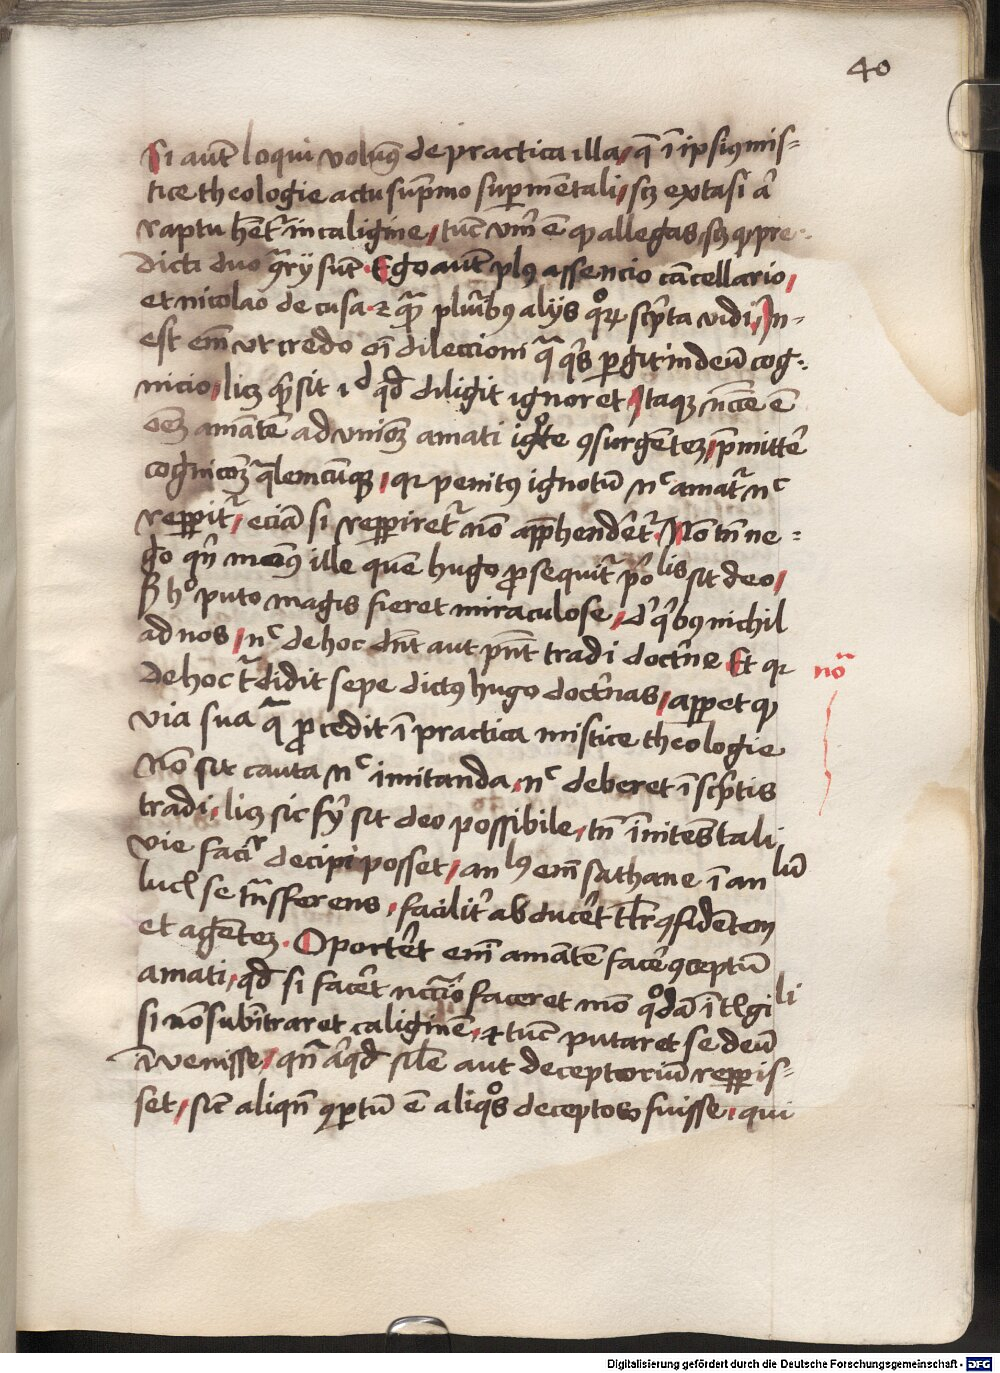 40
Si aut̄ loqui volum9 de practica illa, q̄ ī ipsi9 mis-
tice theologie actu sup̄mo sup̄mentali, scz extasi a͛
raptu hēt͛ in caligine, tūc vm̄ ē qp allegas, scz qp pre-
dicti duo q̄rij sūt. Ego aut̄ pl9 assencio cācellario,
et nicolao de cusa, z q̄ plurib9 alijs qoꝝ scp̄ta vidi, In-
est em̄ vt credo oī dileccioni q̄ q͛s pergit in deū cog-
nicio, licz q̄ sit id qd̄ diligit ignoret, Itaqz n̄cce ē
oēz amātē ad vnionēz amati ig͛te 9surgētez, p̄mitte͛
cognicōz q̄lemcūqz, qz penit9 ignotū nc amat͛ nc
repperit͛, eciā si reppiret͛ nō apphendēt͛. Nō tn̄ ne-
go qn̄ mod9 ille quē hugo ꝓsequit͛ po͛lis sit deo,
ꝫ ho puto magis fieret miraculose, de͛ q͛b9 nichil
ad nos, nc de hoc dn̄t aut pn̄t tradi doctrine. Et qz
de hoc t͛didit sepe dict9 hugo doctrinas, apparet qp
via sua q̄ ꝓcedit ī practica mistice theologie
nō
Nō sit cauta nc imitanda, nc deberet ī scp̄tis
tradi, licz sic fy͛ sit deo possibile, tn̄ īnitens tali
vie facil͛r decipi posset, anl9 em̄ sathane ī anlū
lucꝭ se t͛nsferens, facilit͛ abduce͛t tal͛r 9fidētem
et agētez. Oporte͛t em̄ amātē face͛ 9ceptū
amati, qd̄ si face͛t nccio͛ faceret mo qodā ītlgili
si nō subītraret caliginē, et tūc putaret se deū
īvenisse, qn̄ a͛qd̄ sil̄e aut deceptoriū reppis-
set, sic͛ aliqn̄ 9pertū ē aliqos deceptos fuisse, qui
Digitalisierung gefördert durch die Deutsche Forschungsgemeinschaft - DFG